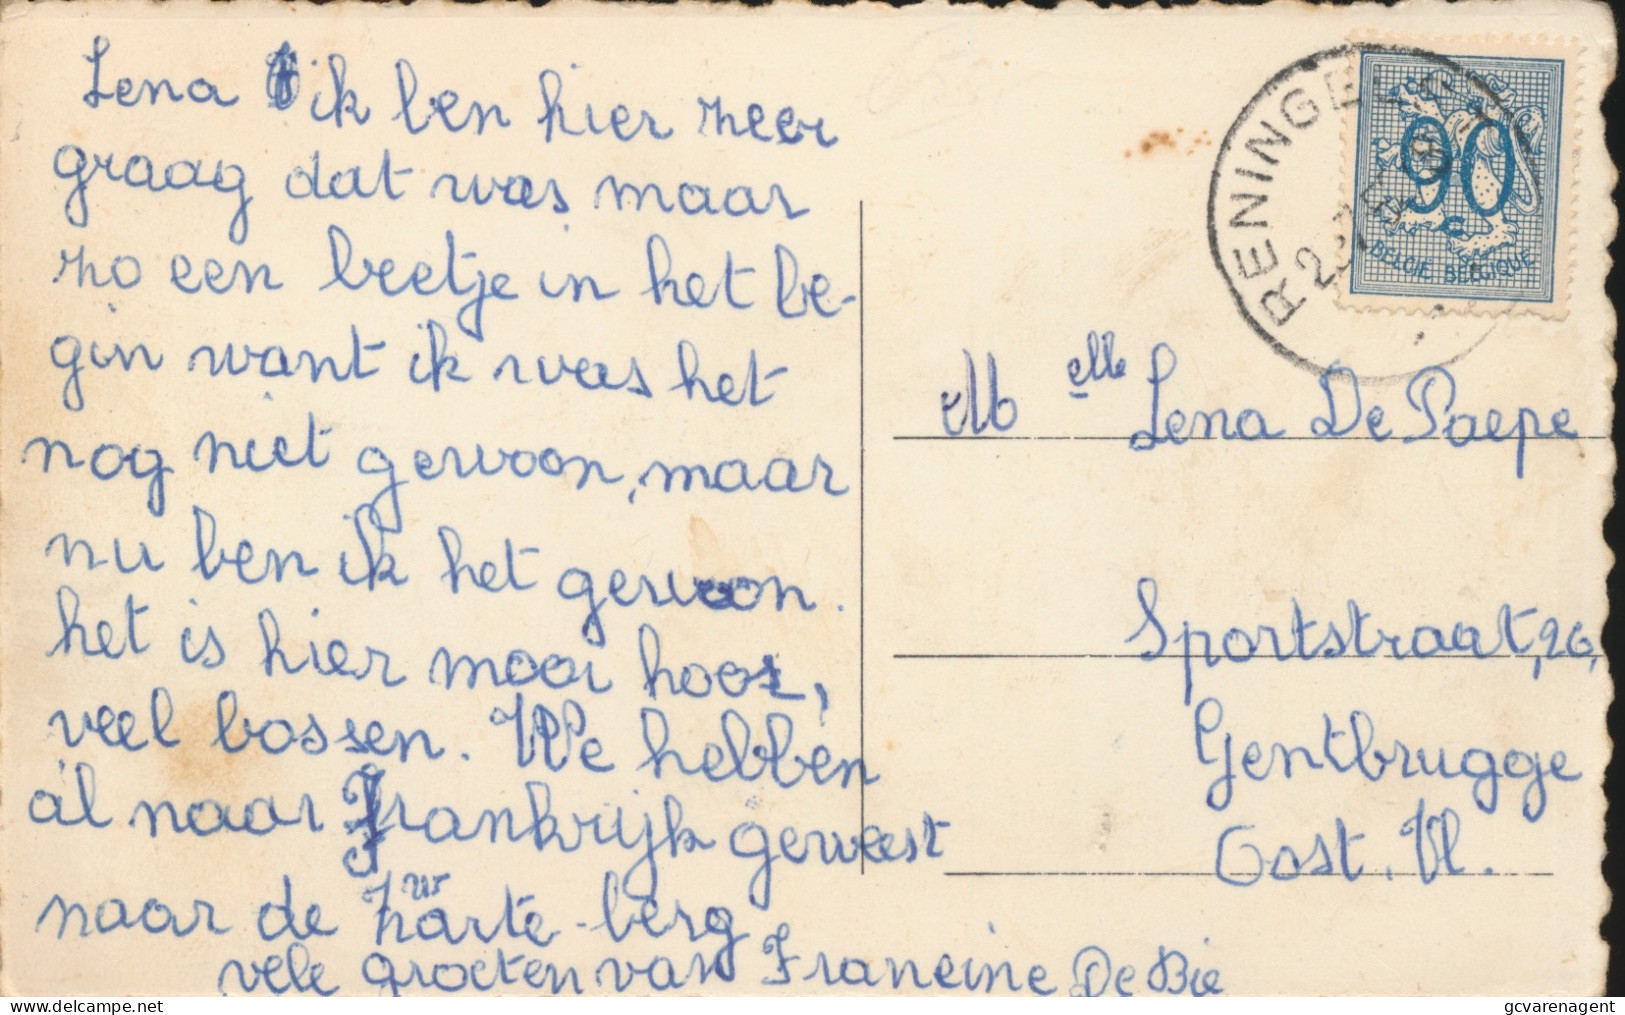 Lena ik ben hier zeer
graag dat was maar
zo een beetje in het be-
gin want ik was het
nog niet gewoon, maar
nu ben ik het gewoon.
het is hier mooi hoor,
veel bossen. We hebben
al naar Frankrijk geweest
naar de zwarte-berg
vele groeten van Francine De Bie
RENINGELST
90
BELGIE BELGIQUE
Melle Lena De Paepe
Sportstraat, 26,
Gentbrugge
Oost. Vl.
delcampe.net
gcvarenagent